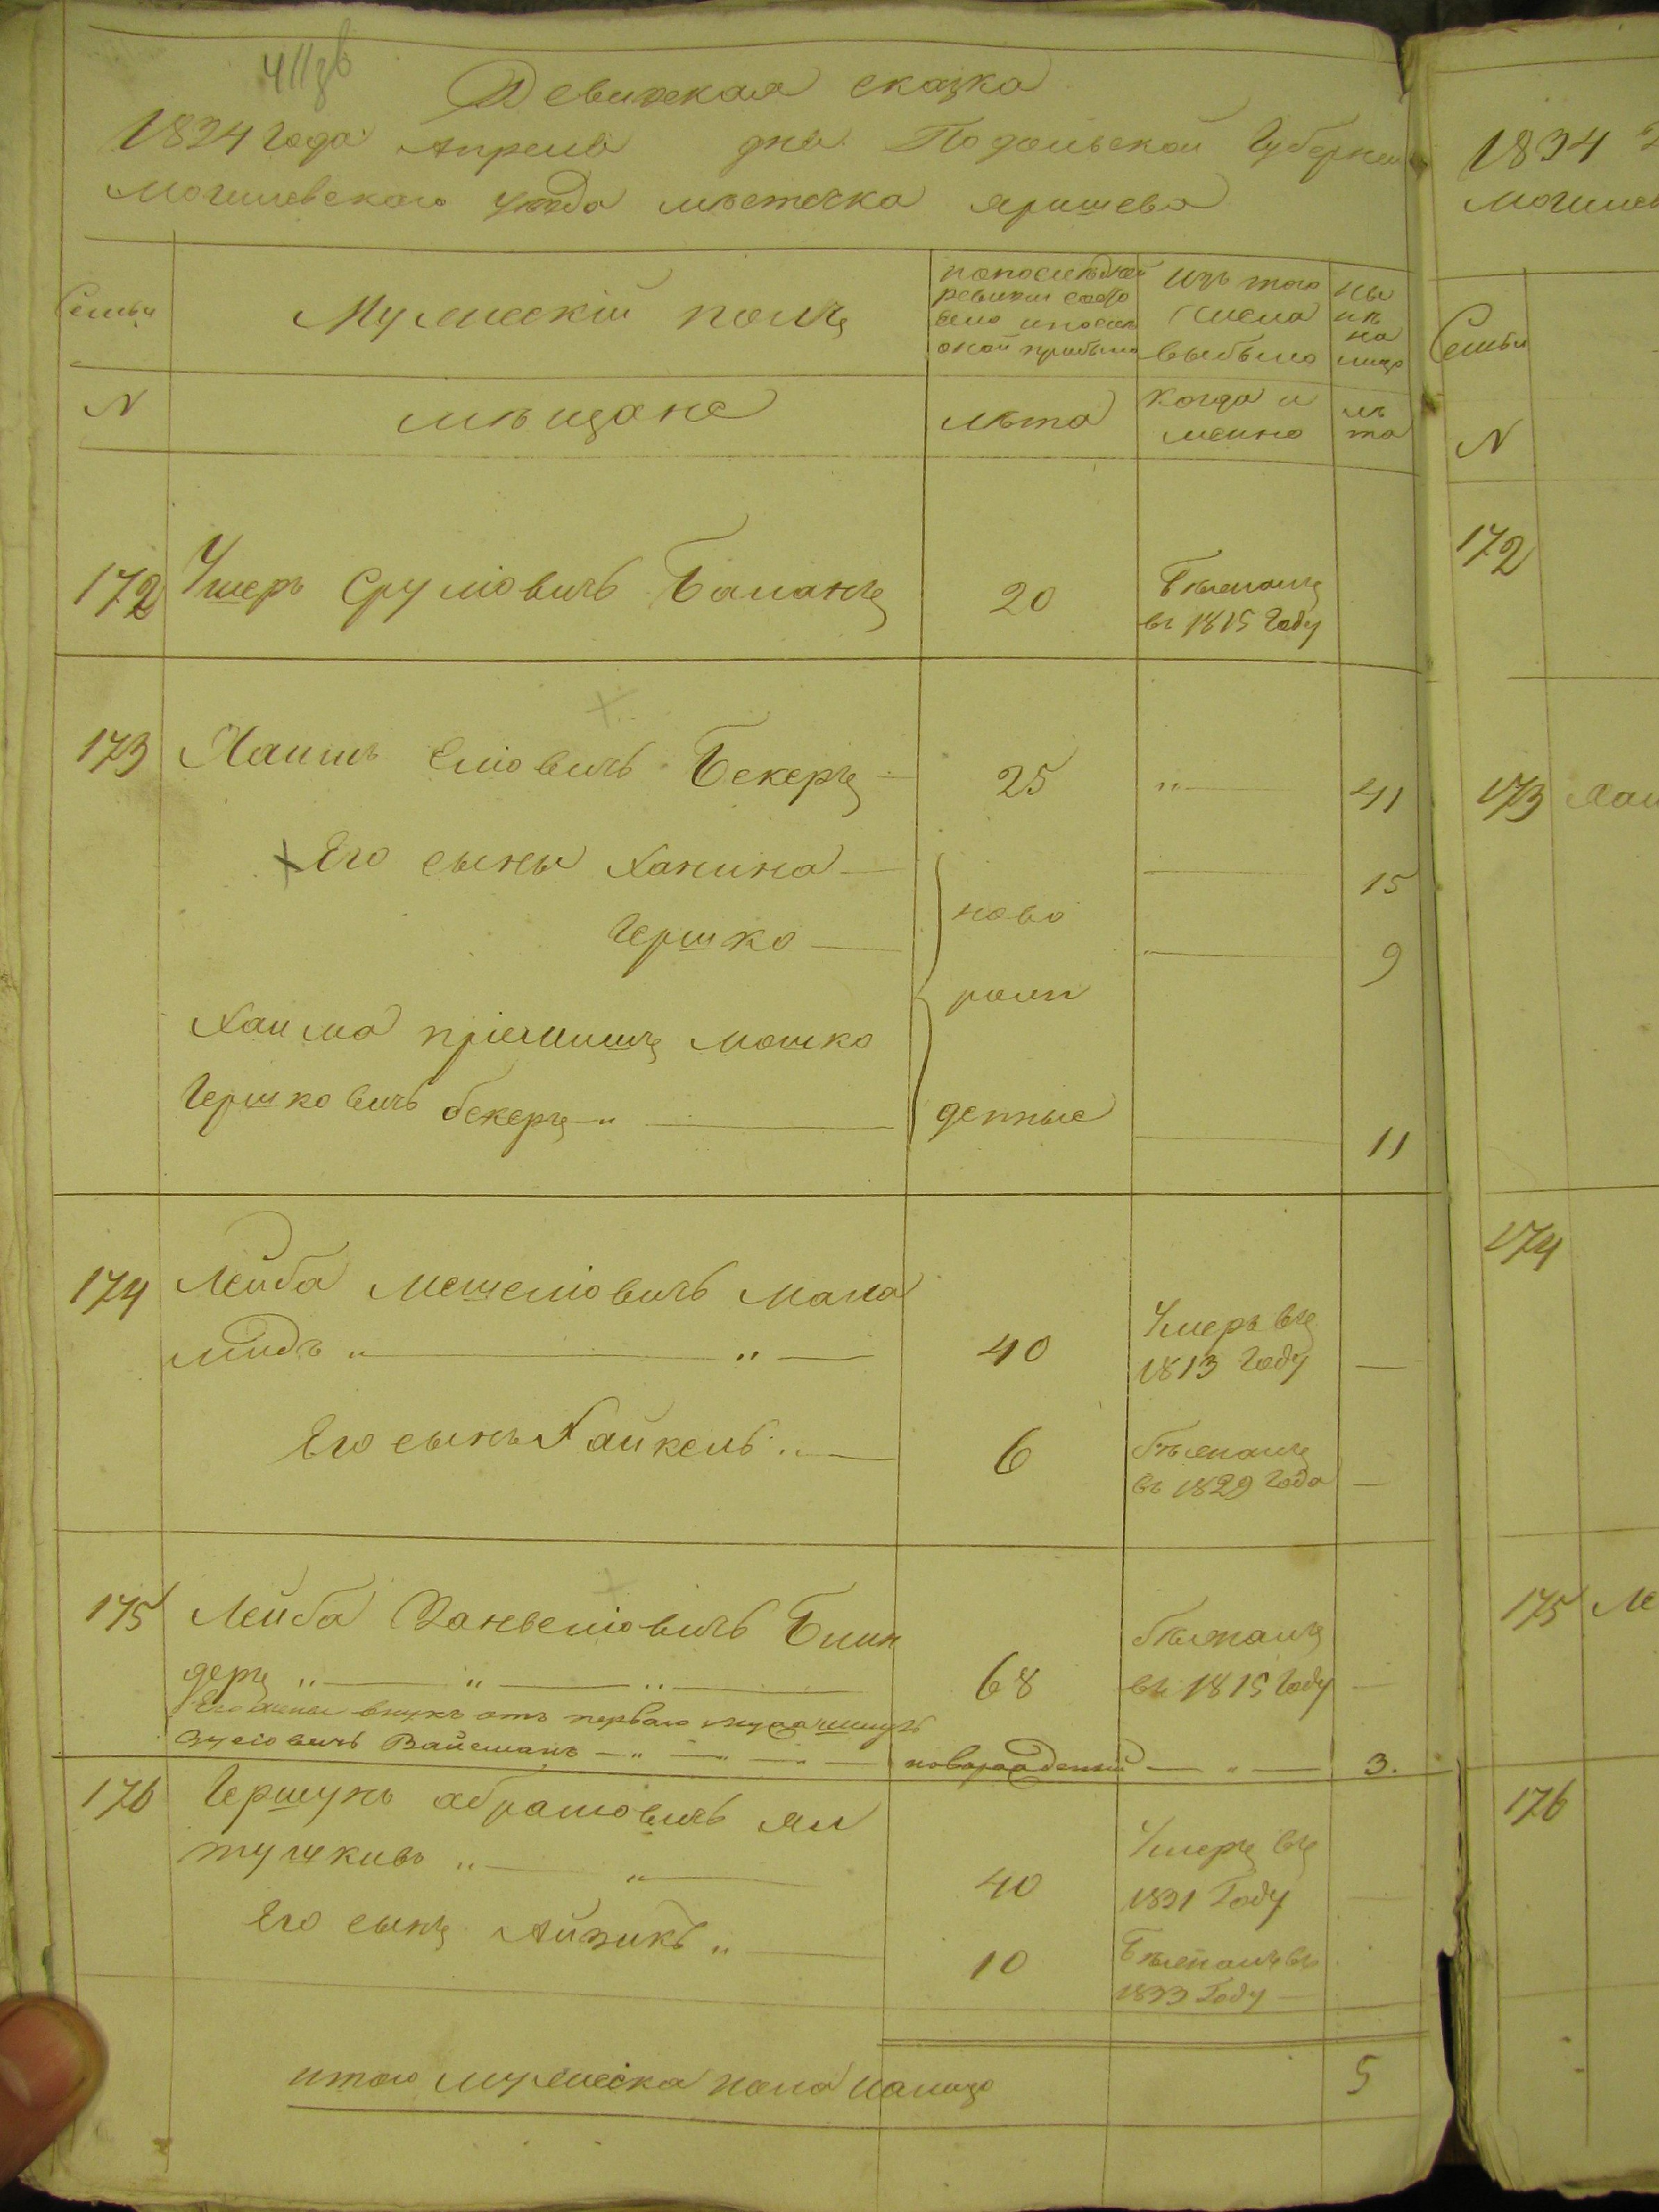 411об
Ревизская сказка
1834 года Апреля дня Подольской Губернии
Могилевского уезда местечка Яришева
1834
Могилев
Семьи
Мужескій полъ
по последней ревизіи состояло и после оной прибыло
Изъ того числа выбыло
Ны не на лицо
Семьи
N
мещане
лета
когда имянно
ле та
N
172
Ушеръ Сруліовичъ Баланъ
20
Бежалъ въ 1815 Году
172
173
Хаимъ Еліовичъ Бекеръ
25
41
173 Хаи
Его сыны Ханина
ново
15
Гершко
9
рож
Хаима пріемышъ Мошко
Гершковичъ бекеръ
денные
11
174
Лейба Мешеліовичъ Мала
медъ
40
Умеръ въ 1813 Году
174
Его сынъ Хайкель
6
бежалъ въ 1829 Года
175
Лейба Занвеліовичъ Блин
деръ
68
бежалъ въ 1815 Году
175 Ле
Его жены внукъ отъ первого мужа
Зусіовичъ Вайсманъ
новорожденный
3.
176
Гершунъ абрамовичъ ял
тушкивъ
40
Умеръ въ 1831 Году
176
Его сынъ Айзикъ
10
Бежалъ въ 1833 Году
итого мужеска пола налицо
5